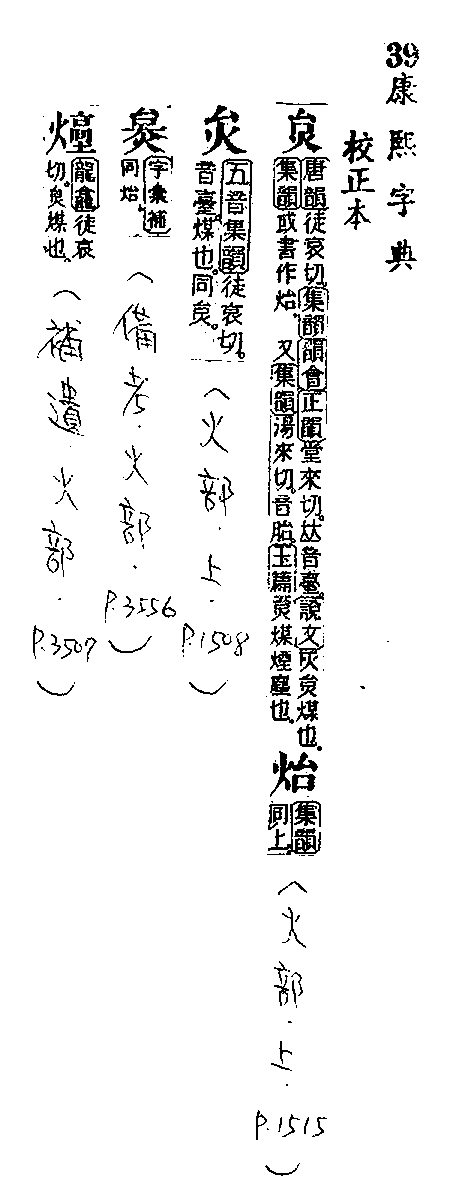 39康熙字典
校正本
炱
唐韻徒哀切。集韻韻會正韻堂來切。𠀤音臺。說文灰炱煤也。
集韻或書作炲。 又集韻湯來切。音胎。玉篇炱煤煙塵也。
炲
集韻
同上。
(火部.上.P.1515)
五音集韻徒哀切。
音臺。煤也。同炱。
(火部.上.P.1508)
字彙補
同炲。
(備考.火部.P.3556)
龍龕徒哀
切。炱煤也。
(補遺.火部.P.3507)